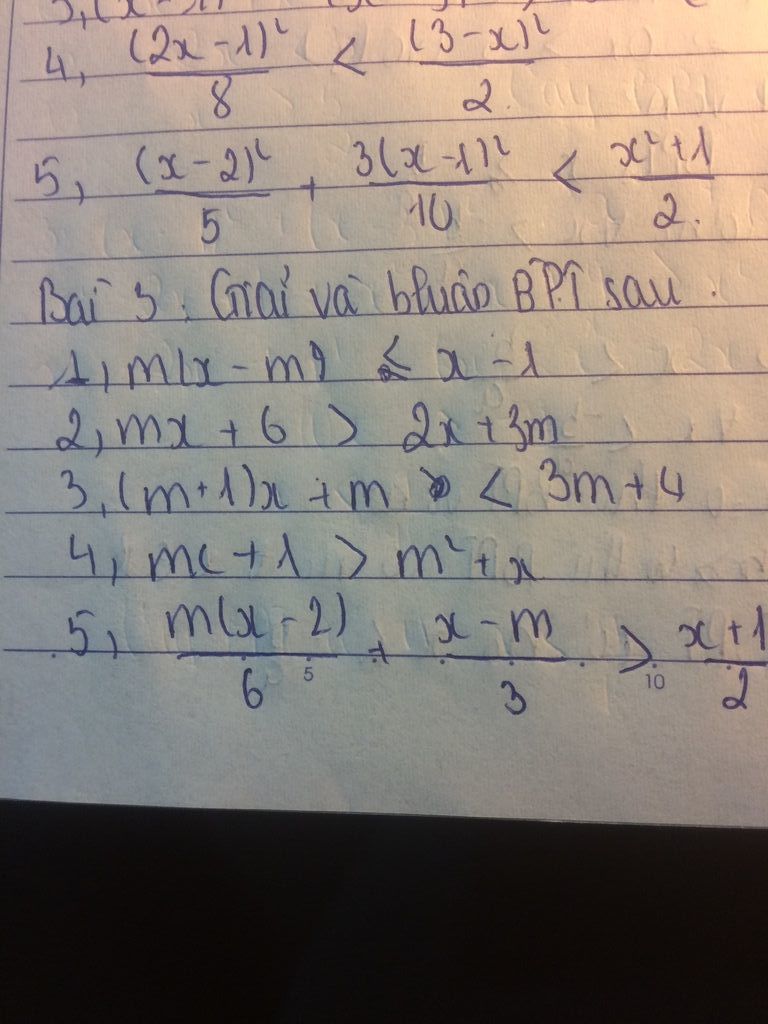 4, (2x-1)² / 8 < (3-x)² / 2.
5, (x-2)² / 5 + 3(x-1)² / 10 < x²+1 / 2.
Bài 3: Giải và bluận BPT sau.
1, m(x-m) ≤ x-1
2, mx + 6 > 2x+3m
3, (m+1)x + m < 3m+4
4, mx + 1 > m² + x
5, m(x-2) / 6 + x-m / 3 > x+1 / 2
5 10